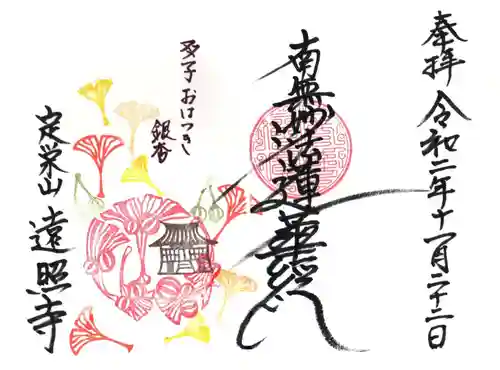 奉拝 令和二年十一月二十二日
南無妙法蓮華経
子 おはつき
銀杏
定栄山 遠照寺